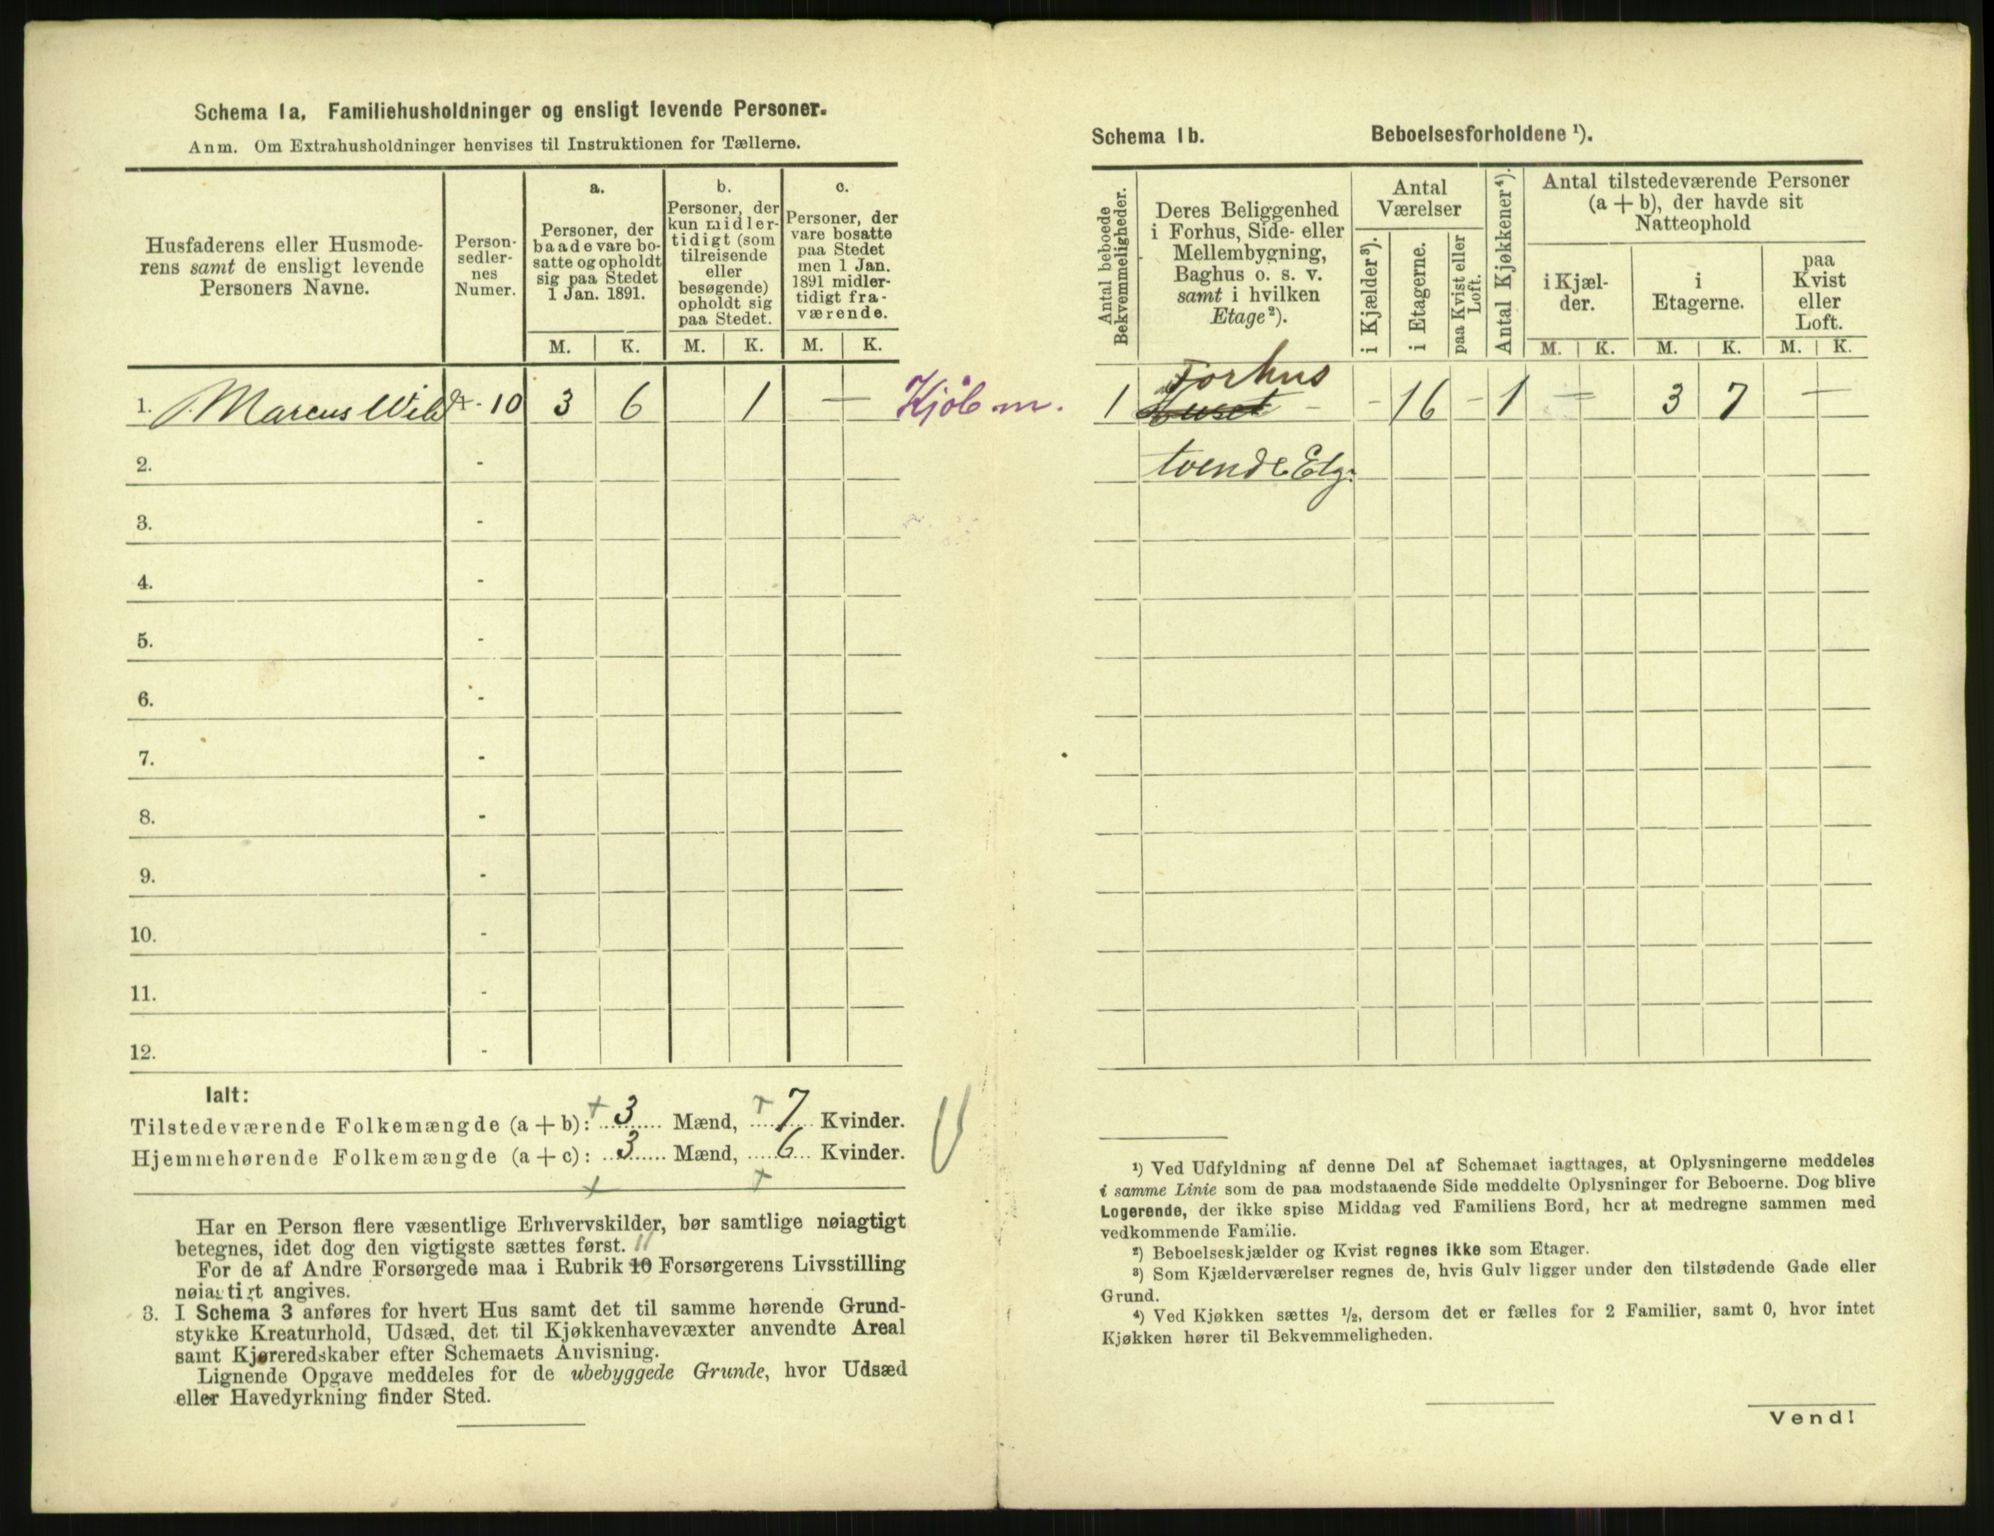 Schema 1a. Familiehusholdninger og ensligt levende Personer.
Anm. Om Extrahusholdninger henvises til Instruktionen for Tællerne.
Husfaderens eller Husmode-
rens samt de ensligt levende
Personers Navne.
Person-
sedler-
nes
Numer.
a.
Personer, der
baade vare bo-
satte og opholdt
sig paa Stedet
1 Jan. 1891.
M. K.
b.
Personer, der
kun midler-
tidigt (som
tilreisende
eller
besøgende)
opholdt sig
paa Stedet.
M. K.
c.
Personer, der
vare bosatte
paa Stedet
men 1 Jan.
1891 midler-
tidigt fra-
værende.
M. K.
1. Marcus 1 - 10 3 6 1 — Kjöbm.
2. -
3. -
4. -
5. -
6. -
7. -
8. -
9. -
10. -
11. -
12. -
Ialt:
Tilstedeværende Folkemængde (a + b): 3 Mænd, 7 Kvinder.
Hjemmehørende Folkemængde (a + c): 3 Mænd, 6 Kvinder.
Har en Person flere væsentlige Erhvervskilder, bør samtlige nøiagtigt
betegnes, idet dog den vigtigste sættes først. 11
For de af Andre Forsørgede maa i Rubrik 10 Forsørgerens Livsstilling
nøiagtigt angives.
3. I Schema 3 anføres for hvert Hus samt det til samme hørende Grund-
stykke Kreaturhold, Udsæd, det til Kjøkkenhavevæxter anvendte Areal
samt Kjøreredskaber efter Schemaets Anvisning.
Lignende Opgave meddeles for de ubebyggede Grunde, hvor Udsæd
eller Havedyrkning finder Sted.
Schema 1b. Beboelsesforholdene ¹).
Antal beboede
Bekvemmeligheder.
Deres Beliggenhed
i Forhus, Side- eller
Mellembygning,
Baghus o. s. v.
samt i hvilken
Etage²).
Antal
Værelser
i Kjælder³).
i Etagerne.
paa Kvist eller
Loft.
Antal Kjøkkener⁴).
Antal tilstedeværende Personer
(a + b), der havde sit
Natteophold
i Kjæl-
der.
M. K.
i
Etagerne.
M. K.
paa
Kvist
eller
Loft.
M. K.
Forhus
1 Huset - - 16 - 1 — 3 7 —
tvende Etg.
¹) Ved Udfyldning af denne Del af Schemaet iagttages, at Oplysningerne meddeles
i samme Linie som de paa modstaaende Side meddelte Oplysninger for Beboerne. Dog blive
Logerende, der ikke spise Middag ved Familiens Bord, her at medregne sammen med
vedkommende Familie.
²) Beboelseskjælder og Kvist regnes ikke som Etager.
³) Som Kjælderværelser regnes de, hvis Gulv ligger under den tilstødende Gade eller
Grund.
⁴) Ved Kjøkken sættes ½, dersom det er fælles for 2 Familier, samt 0, hvor intet
Kjøkken hører til Bekvemmeligheden.
Vend!